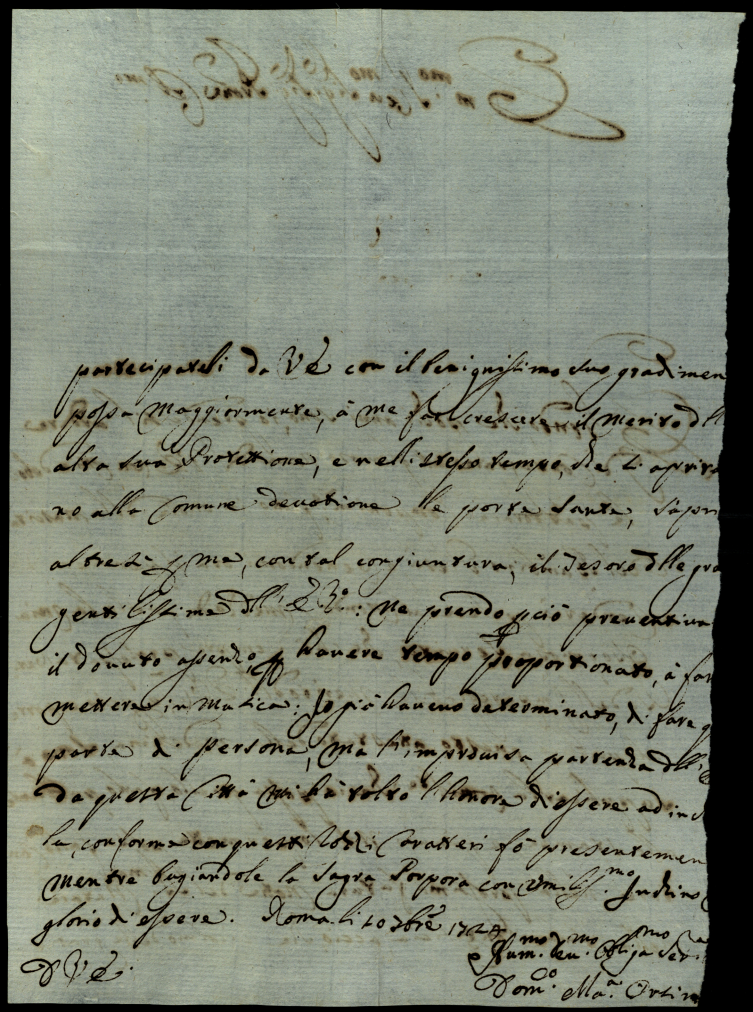 partecipateli da VE con il benignissimo suo gradimen
possa maggiormente, à me far crescere il merito dll
alta sua Protettione, e nell'istesso tempo, che s'aprira
no alla Comune devotione le porte Sante, s'apri
altresì p me, con tal congiuntura, il Tesoro dlle gra
gentilissime dll' : ne prendo pciò preventiva
il dovuto assenso, p havere tempo proportionato, à far
mettere in Musica: Io già havevo determinato, di fare q
parte di persona, ma l'improvisa partenza dll'
da questa Città mi hà tolto l'honore di essere ad in
le, conforme con questi rozzi Caratteri fò presentemen
mentre bugiandole la Sagra Porpora con umiliss.mo Inchino
glorio di essere. Roma li 10 Xbre 1724
D VE.
Hum.mo Dev.mo Obligamo Ser
Dom.co Ma.a